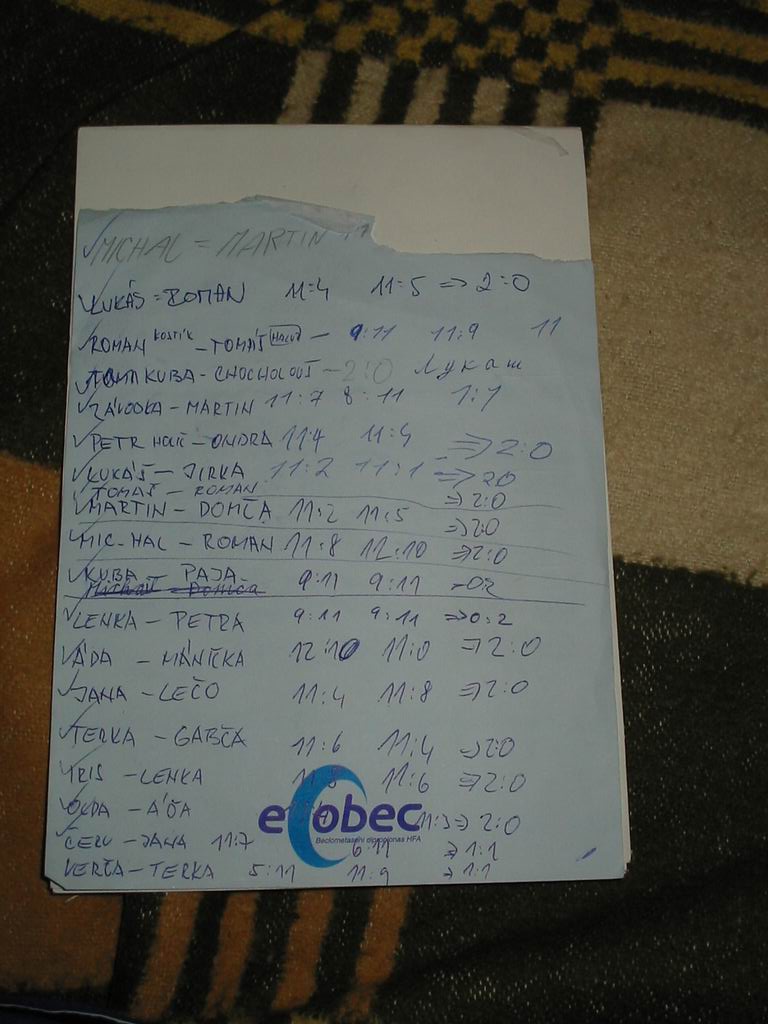 MICHAL = MARTIN
LUKÁŠ = ROMAN 11:4 11:5 => 2:0
ROMAN KOSTÍK - TOMÁŠ - 9:11 11:9 11
KUBA - CHOCHOLOUŠ - 2:0 Лукаш
ZÁVODKA - MARTIN 11:7 8:11 1:1
PETR - ONDRA 11:4 11:4 => 2:0
LUKÁŠ - JIRKA 11:2 11:1 => 20
TOMÁŠ - ROMAN => 2:0
MARTIN - DOMČA 11:2 11:5 => 2:0
MIC-HAL - ROMAN 11:8 12:10 => 2:0
KUBA - PAJA 9:11 9:11 - 02
LENKA - PETRA 9:11 9:11 => 0:2
ÁĎA - MÁNIČKA 12:10 11:0 => 2:0
JANA - LEČO 11:4 11:8 => 2:0
TERKA - GABČA 11:6 11:4 => 2:0
IRIS - LENKA 11:8 11:6 => 2:0
OLDA - 11:3 => 2:0
ecobec
Beclometasoni dipropionas HFA
- JANA 11:7 6:11 => 1:1
VERČA - TERKA 5:11 11:9 => 1:1